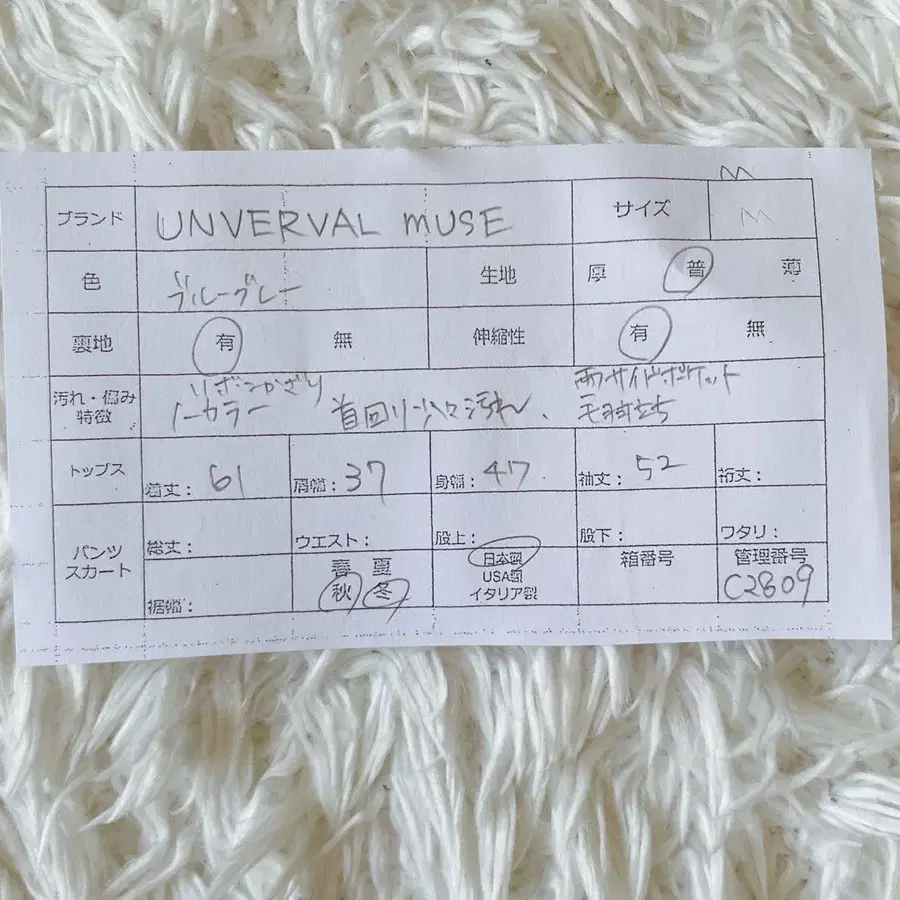 M
ブランド UNVERVAL MUSE サイズ M
色 ブルーグレー 生地 厚 普 薄
裏地 有 無 伸縮性 有 無
リボンかざり 両サイドポケット
汚れ・傷み 特徴 ノーカラー 首回り 汚れ、 毛羽立ち
トップス 着丈: 61 肩幅: 37 身幅: 47 袖丈: 52 裄丈:
パンツ スカート 総丈: ウエスト: 股上: 股下: ワタリ:
裾幅: 春 夏 秋 冬 日本製 USA製 イタリア製 箱番号 管理番号 C2809